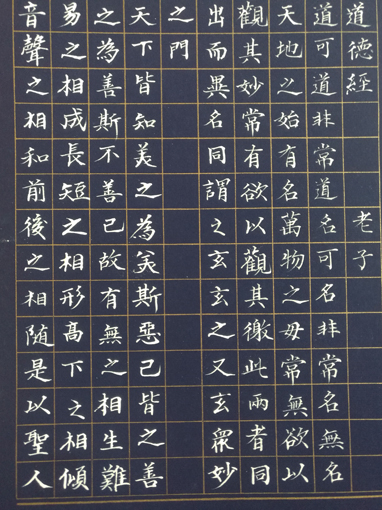 道德經 老子
道可道非常道名可名非常名無名
天地之始有名萬物之母常無欲以
觀其妙常有欲以觀其徼此兩者同
出而異名同謂之玄玄之又玄衆妙
之門
天下皆知美之為美斯惡已皆之善
之為善斯不善已故有無之相生難
易之相成長短之相形高下之相傾
音聲之相和前後之相随是以聖人